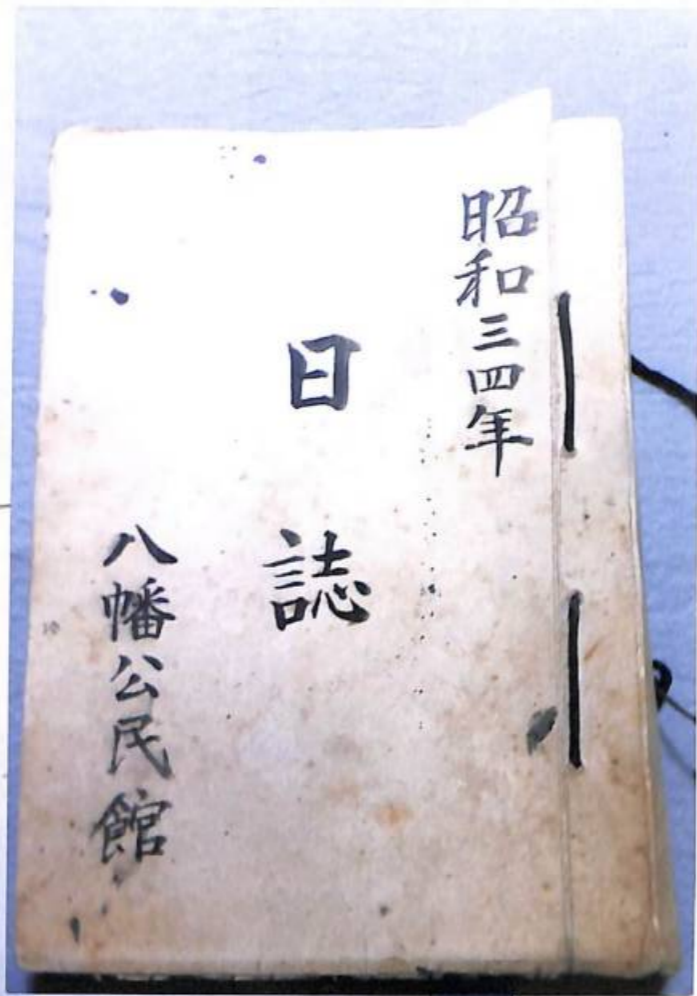 昭和三四年
日誌
八幡公民館